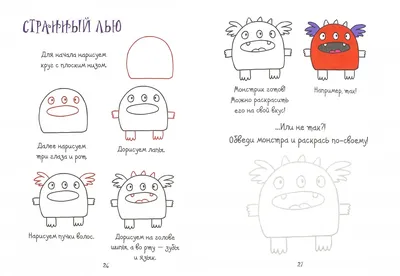 СТРАННЫЙ ЛЬЮ
Для начала нарисуем
круг с плоским низом.
Далее нарисуем
три глаза и рот.
Дорисуем лапы.
Рисуем пучки волос.
Дорисуем на голове
шипы, а во рту — зубы
и язык.
26
Монстрик готов!
Можно раскрасить
его на свой вкус!
Например, так!
...Или не так?!
Обведи монстра и раскрась по-своему!
27